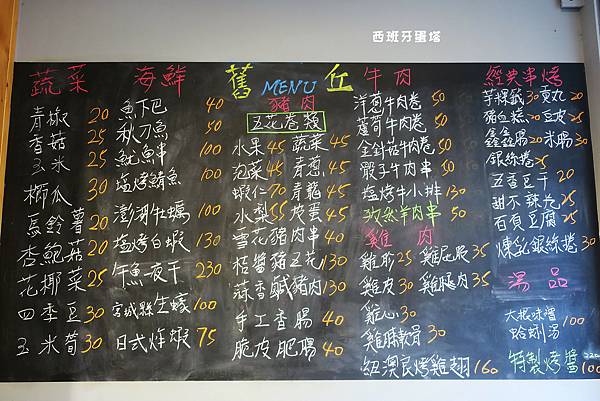 西班牙蛋塔
舊 MENU 丘
蔬菜
青椒 20
香菇 25
玉米
櫛瓜 30
馬鈴薯 20
杏鮑菇 20
花椰菜 25
四季豆 30
玉米筍 30
海鮮
魚下巴 40
秋刀魚 50
魷魚串 100
塩烤鯖魚 100
澎湖牡蠣 100
塩烤白蝦 130
午魚一夜干 230
宮城縣生蠔 100
日式炸蝦 75
豬肉
五花卷類
水果 45 蔬菜 45
泡菜 45 青葱 45
蝦仁 70 青龍 45
水梨 55 皮蛋 45
雪花豬肉串 40
梧醬豬五花 130
蒜香鹹豬肉 130
手工香腸 40
脆皮肥腸 40
牛肉
洋葱牛肉卷 50
蘆筍牛肉卷 50
金針菇牛肉卷 50
骰子牛肉串 50
塩烤牛小排 130
孜然羊肉串 50
雞肉
雞胗 25 雞屁股 35
雞皮 30 雞腿肉 35
雞心 30
雞膝軟骨 30
紐澳良烤雞翅 160
經典串烤
芋粿 30 貢丸 20
豬血糕 30 豆皮 25
鑫鑫腸 20 米腸 30
銀絲卷 25
五香豆干 20
甜不辣 25
百頁豆腐 25
煉乳銀絲卷 30
湯品
大根味噌
蛤蜊湯 100
特製烤醬 220
100